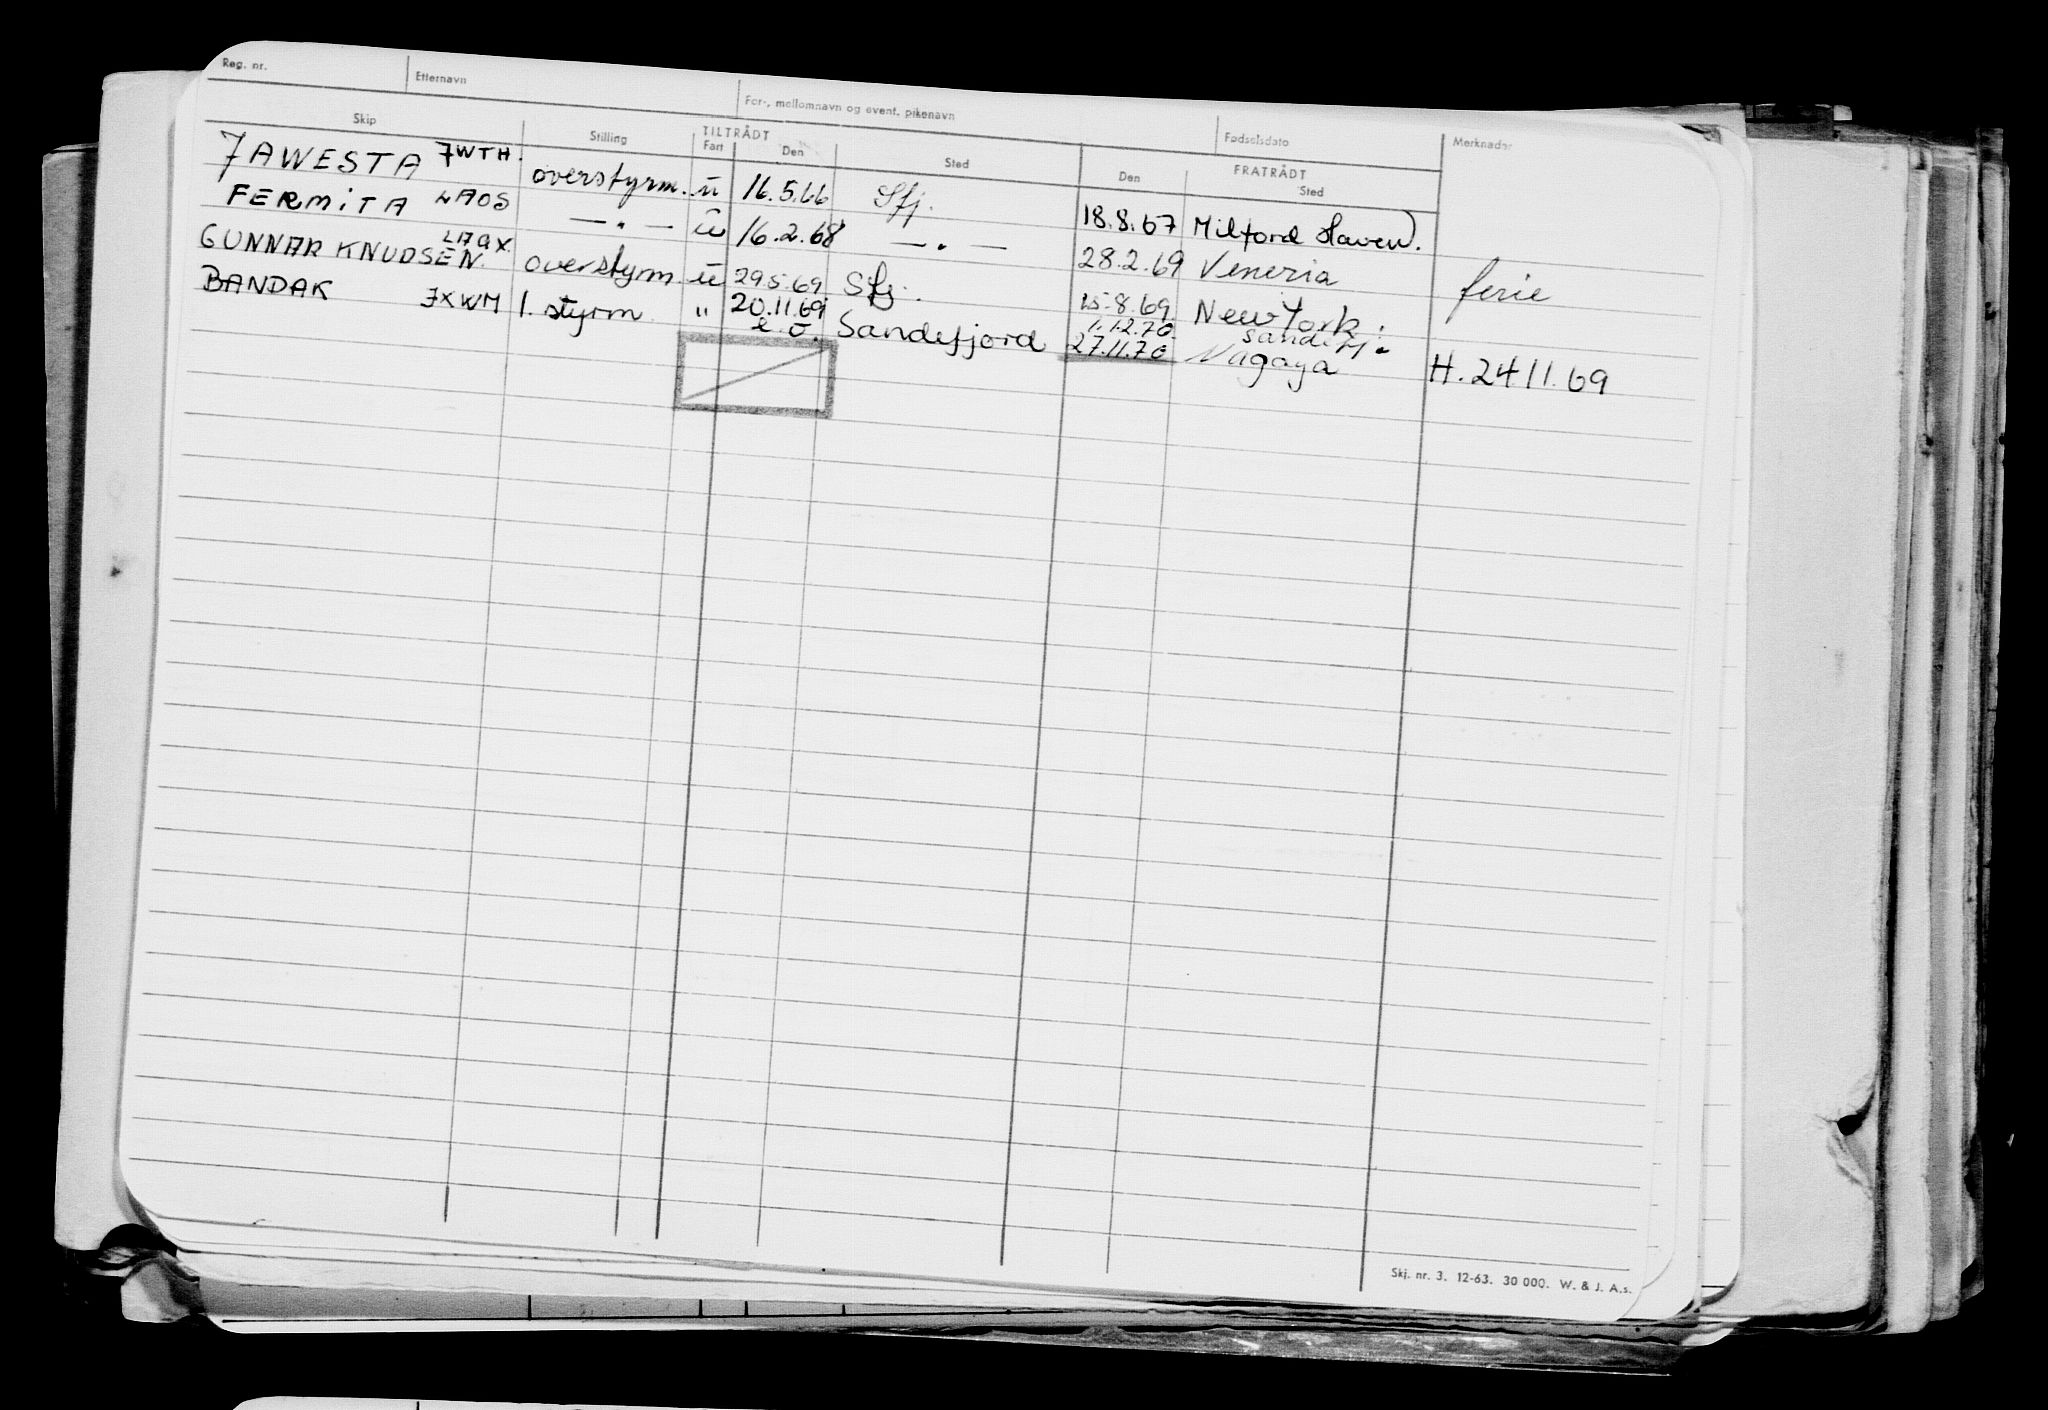 Reg. nr. Etternavn For-, mellomnavn og event. pikenavn Fødselsdato Merknader
Skip Stilling TILTRÅDT FRATRÅDT
Fart Den Sted Den Sted
JAWESTA JWTH. overstyrm. u 16.5.66 Sfj. 18.8.67 Milford Haven.
FERMITA LAOS —„— u 16.2.68 —„— 28.2.69 Veneria ferie
GUNNAR KNUDSEN. LAQX. overstyrm. u 29.5.69 Sfj. 15.8.69 New York.
BANDAK JXWM 1. styrm. " 20.11.69 Sandefjord 1.12.70 Sandefj. H. 24.11.69
e.o. 27.11.70 Nagoya
Skj. nr. 3. 12-63. 30 000. W. & J. A.s.